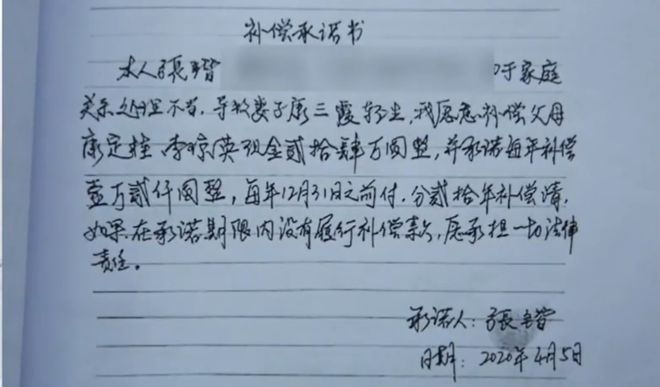 补偿承诺书
本人張智 于家庭
关系处理不当，导致妻子康三霞轻生，我愿意补偿父母
康定柱，李琼英现金贰拾肆万圆整，并承诺每年补偿
壹万贰仟圆整，每年12月31日之前付，分贰拾年补偿清，
如果在承诺期限内没有履行补偿款，愿承担一切法律
责任。
承诺人：張智
日期：2020年4月5日